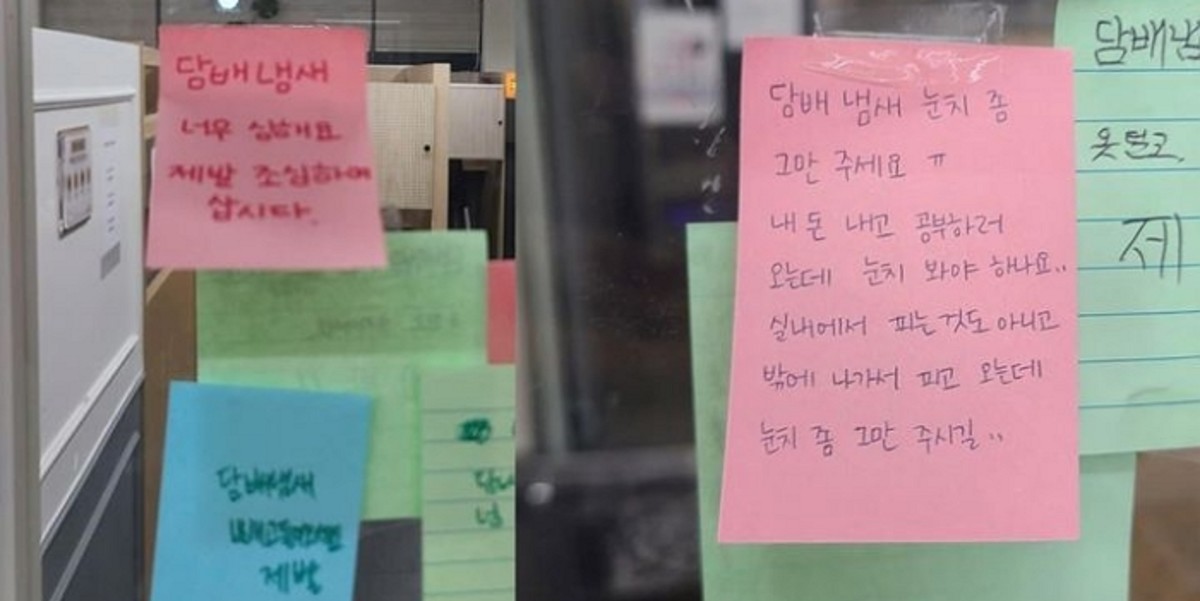 담배냄새
너무 심해요
제발 조심하며
삽시다.
담배냄새
제발
담배 냄새 눈치 좀
그만 주세요 ㅠ
내 돈 내고 공부하러
오는데 눈치 봐야 하나요..
실내에서 피는것도 아니고
밖에 나가서 피고 오는데
눈치 좀 그만 주시길..
담배냄
제